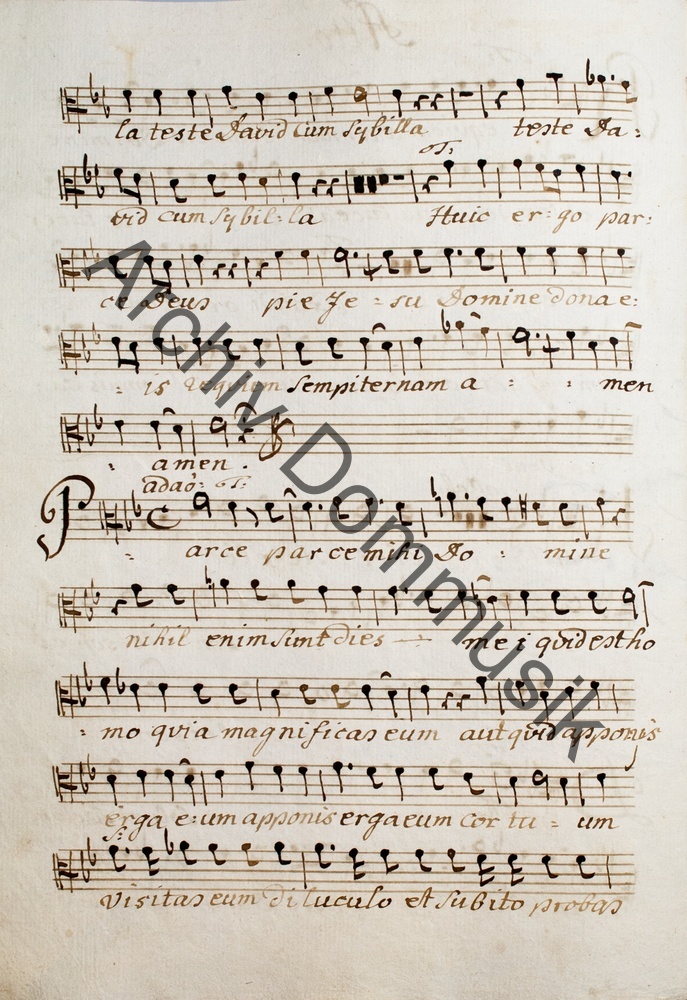 la teste David cum Sybilla teste Da:
vid cum Sybil: la Huic er: go par:
ce Deus pie Je: su Domine dona e:
: is requiem sempiternam a : : men
: amen.
adao: T:
Parce parce mihi Do : mine
nihil enim sunt dies mei quid est ho
: mo quia magnificas eum aut quid apponis
erga e: um apponis erga eum cor tu: um
f:
visitas eum diluculo et subito probas
Archiv Dommusik